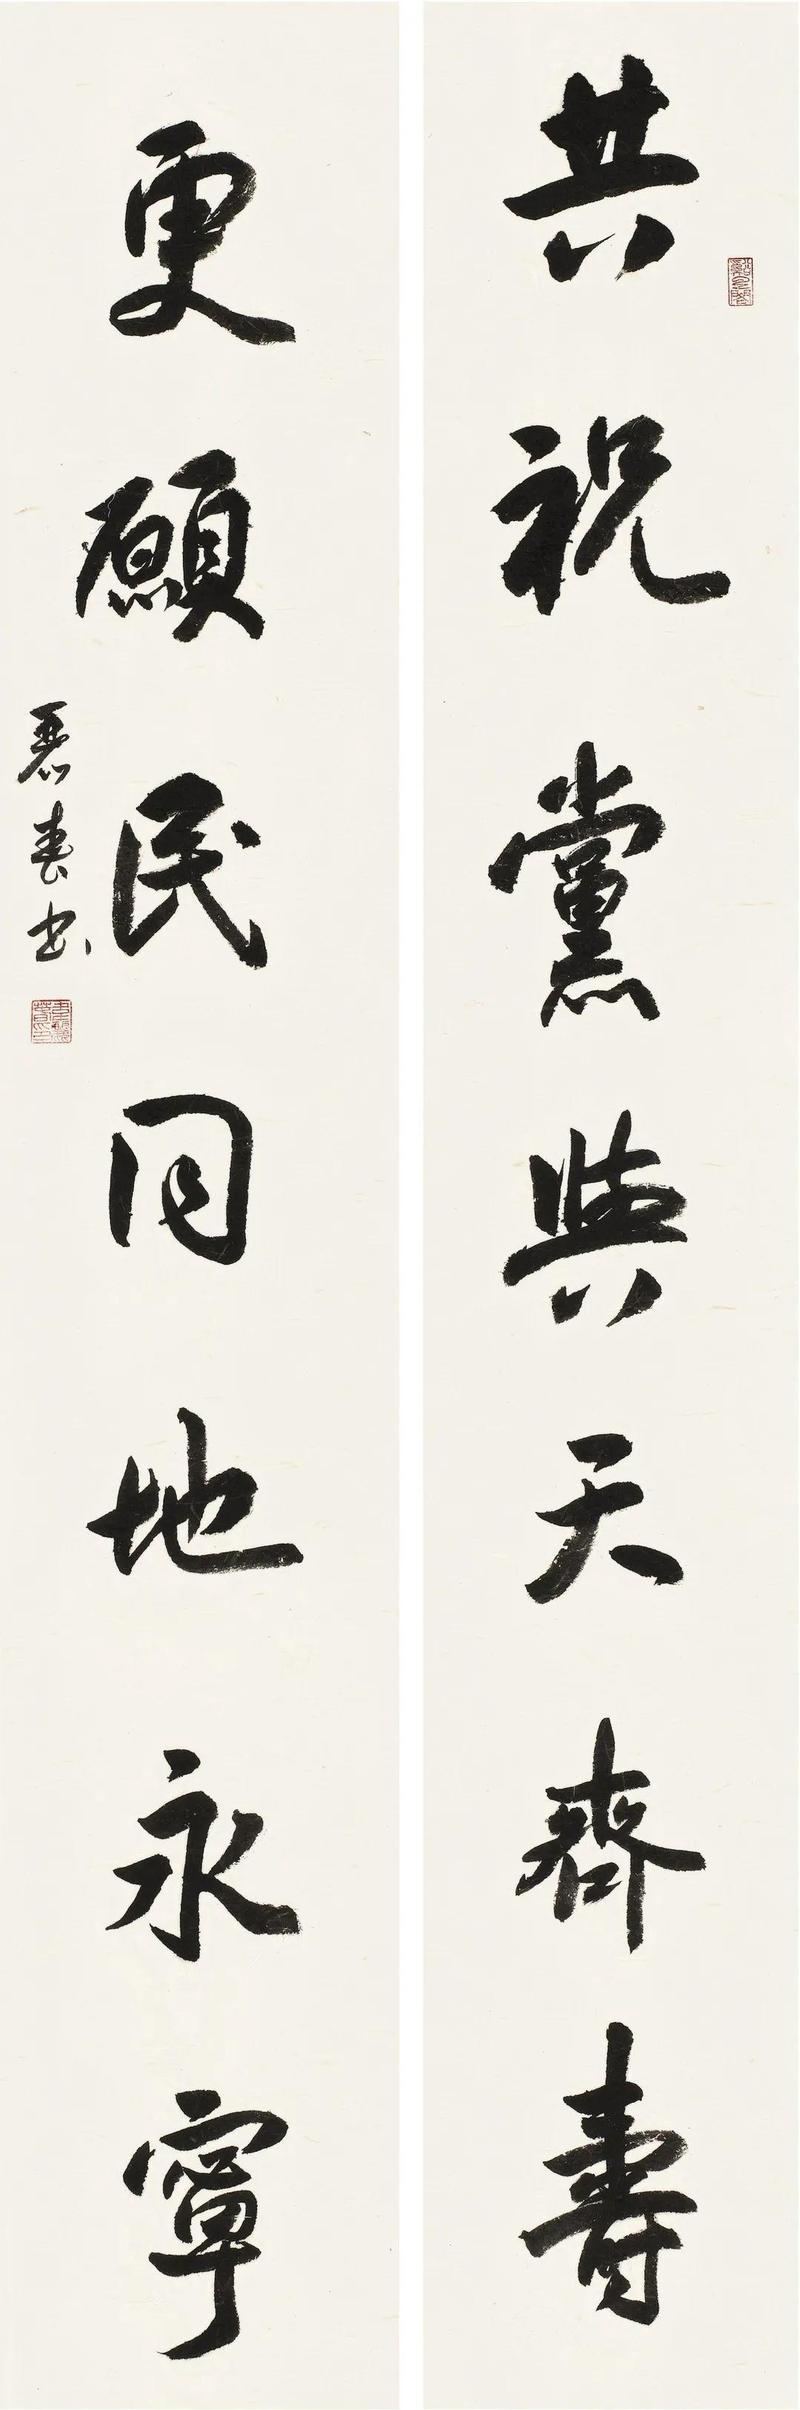 共祝黨與天齊壽
更願民同地永寧
春书